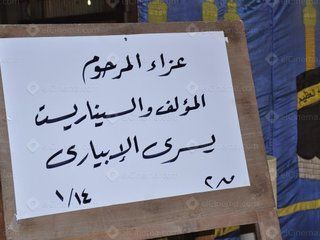 عزاء المرحوم
المؤلف والسيناريست
يسرى الإبيارى
١/١٤
elCinema.com